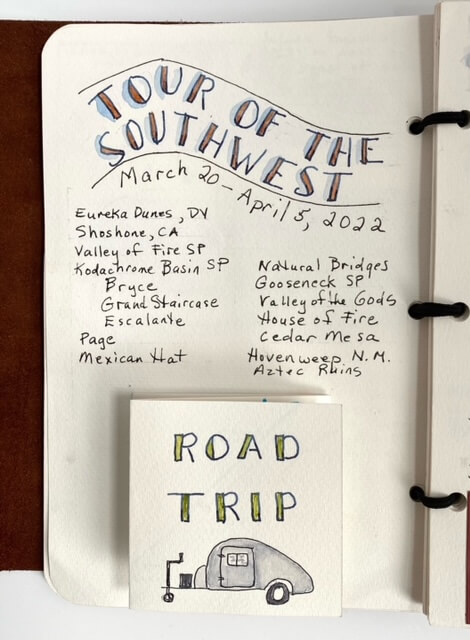 TOUR OF THE
SOUTHWEST
March 20 - April 5, 2022
Eureka Dunes, DV
Shoshone, CA
Valley of Fire SP
Kodachrome Basin SP
Bryce
Grand Staircase
Escalante
Page
Mexican Hat
Natural Bridges
Gooseneck SP
Valley of the Gods
House of Fire
Cedar Mesa
Hovenweep N.M.
Aztec Ruins
ROAD
TRIP